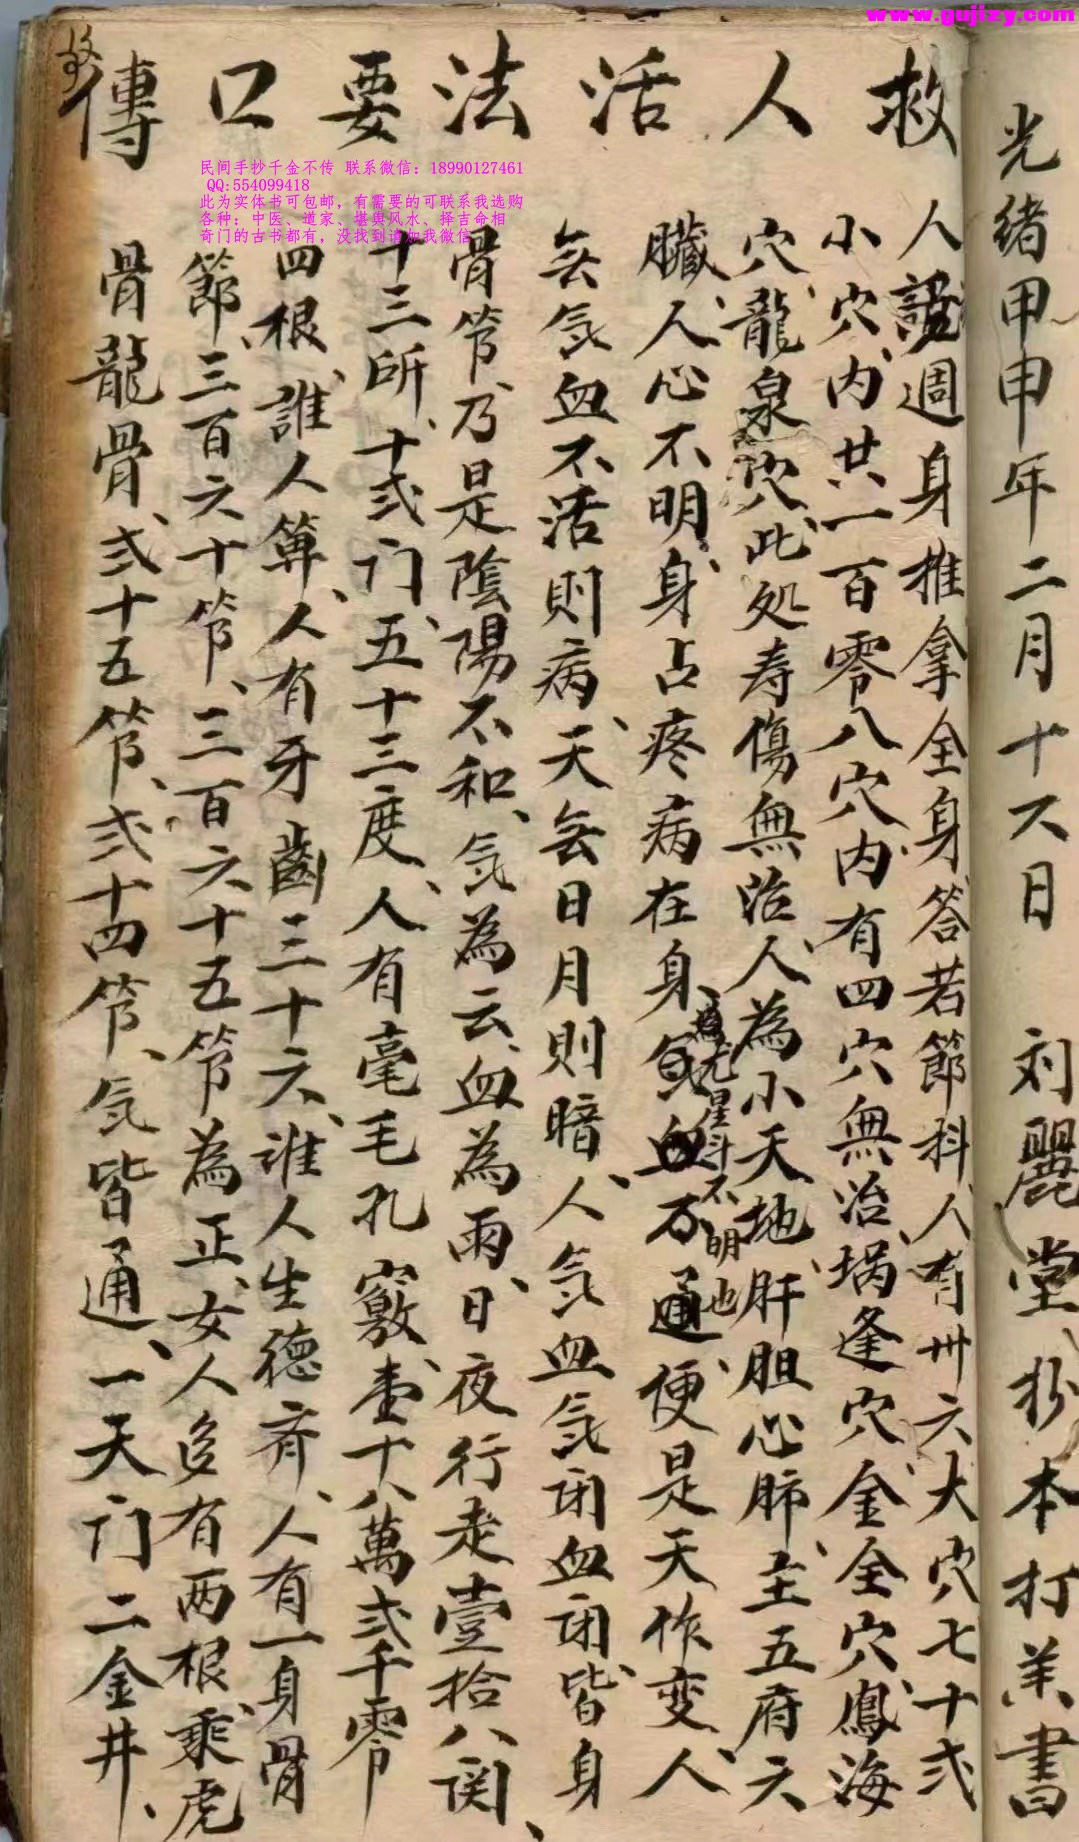 www.gujizy.com
光緒甲申年二月十六日 刘麗堂抄本打羊書
救人活法要口傳
民间手抄千金不传 联系微信：18990127461
QQ:554099418
此为实体书可包邮，有需要的可联系我选购
各种：中医、道家、堪舆风水、择吉命相
奇门的古书都有，没找到请加我微信
人說週身推拿全身答若節科人有卅六大穴七十弍
小穴内共一百零八穴内有四穴無治埚逢穴金全穴鳳海
穴龍泉穴此处寿傷無治人為小天地肝胆心肺主五府六
為尤星斗不明也
臟人心不明身占疼病在身氣血不通便是天作变人
無気血不活則病天無日月則暗人気血気闭血闭皆身
骨節乃是陰陽不和気為云血為雨日夜行走壹拾八関
十三所十弍门五十三度人有毫毛孔竅壹十八萬弍千零
四根誰人算人有牙齒三十六谁人生德齐人有一身骨
節三百六十節三百六十五節為正女人多有两根乘虎
骨龍骨弍十五節弍十四節気皆通一天门二金井